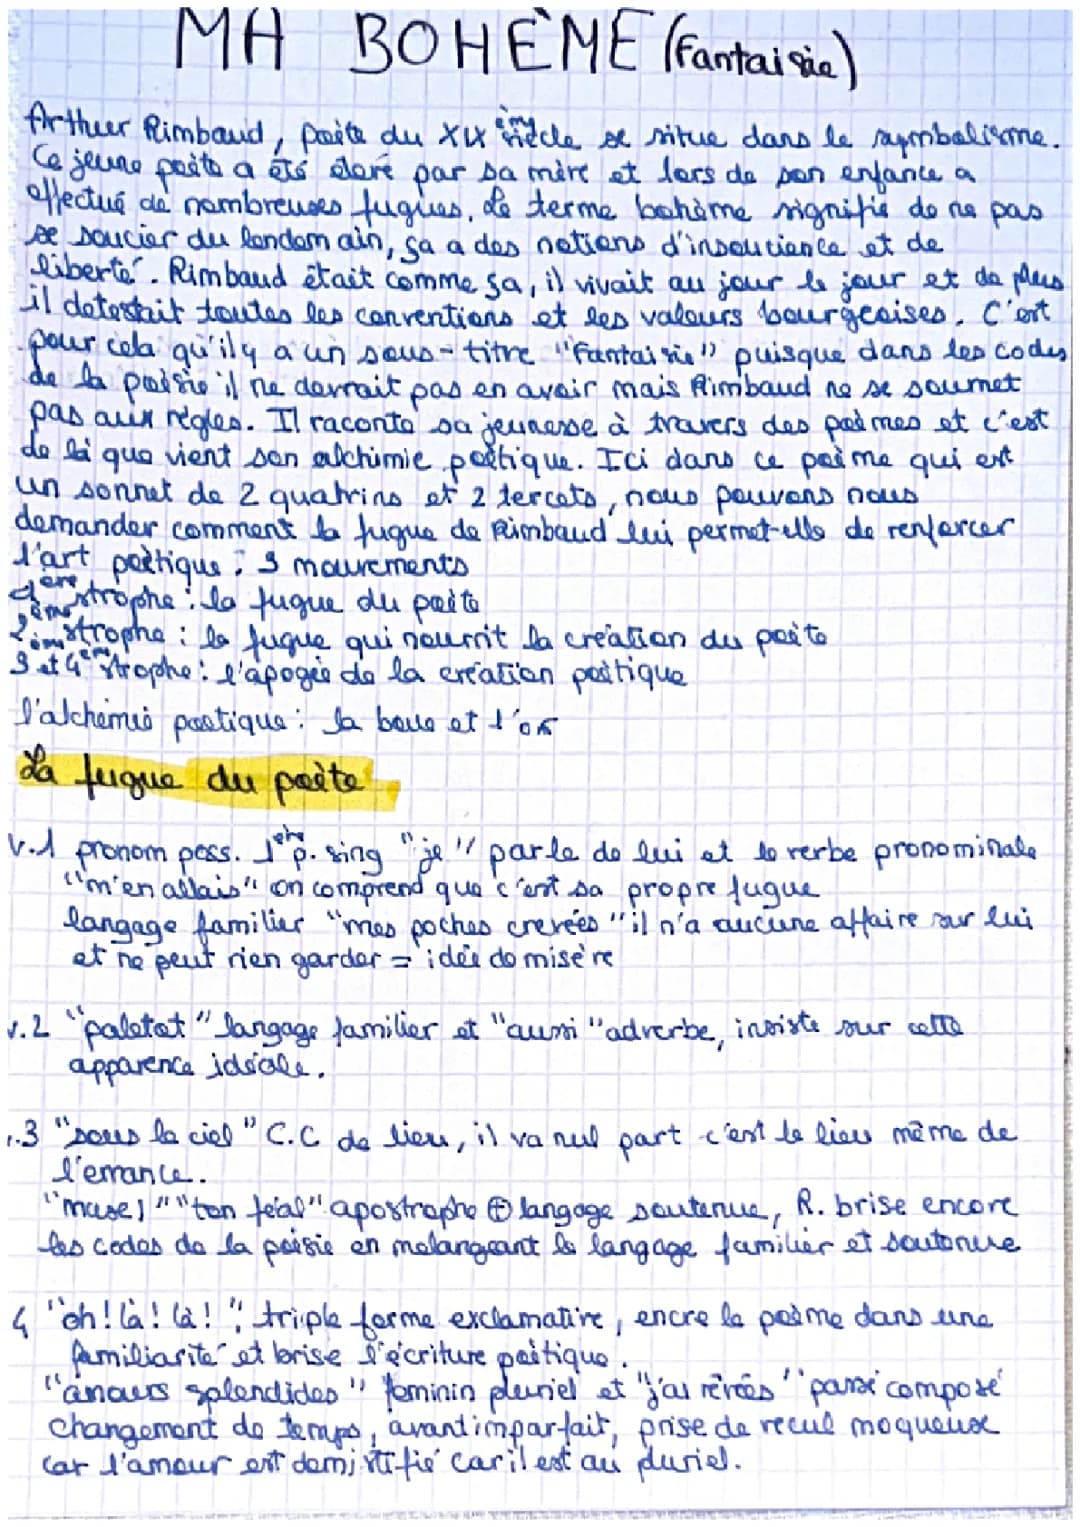 MA BOHÈME (Fantaisie)
Arthur Rimbaud, poète du XIX ème siècle se situe dans le symbolisme.
Ce jeune poète a été élevé par sa mère et lors de son enfance a
effectué de nombreuses fugues. Le terme bohème signifie de ne pas
se soucier du lendemain, sa a des notions d'insouciance et de
liberté. Rimbaud était comme sa, il vivait au jour le jour et de plus
il detestait toutes les conventions et les valeurs bourgeoises. C'est
pour cela qu'il y a un sous-titre "Fantaisie" puisque dans les codes
de la poésie il ne devrait pas en avoir mais Rimbaud ne se soumet
pas aux règles. Il raconte sa jeunesse à travers des poèmes et c'est
de là que vient son alchimie poétique. Ici dans ce poème qui est
un sonnet de 2 quatrins et 2 tercets, nous pouvons nous
demander comment la fugue de Rimbaud lui permet-elle de renforcer
l'art poètique ; 3 mouvements
1ère strophe : la fugue du poète
2ème strophe : la fugue qui nourrit la création du poète
3 et 4ème strophe : l'apogée de la création poètique
l'alchimie poetique : la boue et l'or
La fugue du poète
v.1 pronom poss. 1ère p. sing "je" parle de lui et le verbe pronominale
"m'en allais" on comprend que c'est sa propre fugue
langage familier "mes poches crevées" il n'a aucune affaire sur lui
et ne peut rien garder = idée de misère
v.2 "paletot" langage familier et "aussi" adverbe, insiste sur cette
apparence idéale.
v.3 "sous le ciel" C.C de lieu, il va nul part c'est le lieu même de
l'errance.
"muse)" "ton féal" apostrophe ⊕ langage soutenue, R. brise encore
les codes de la poésie en melangeant le langage familier et soutenue
4 "oh! là! là!", triple forme exclamative, encre le poème dans une
familiarité et brise l'écriture poètique.
"amours splendides" feminin pluriel et "j'ai rêvées" passé composé
changement de temps, avant imparfait, prise de recul moqueux
car l'amour est demistifié car il est au pluriel.